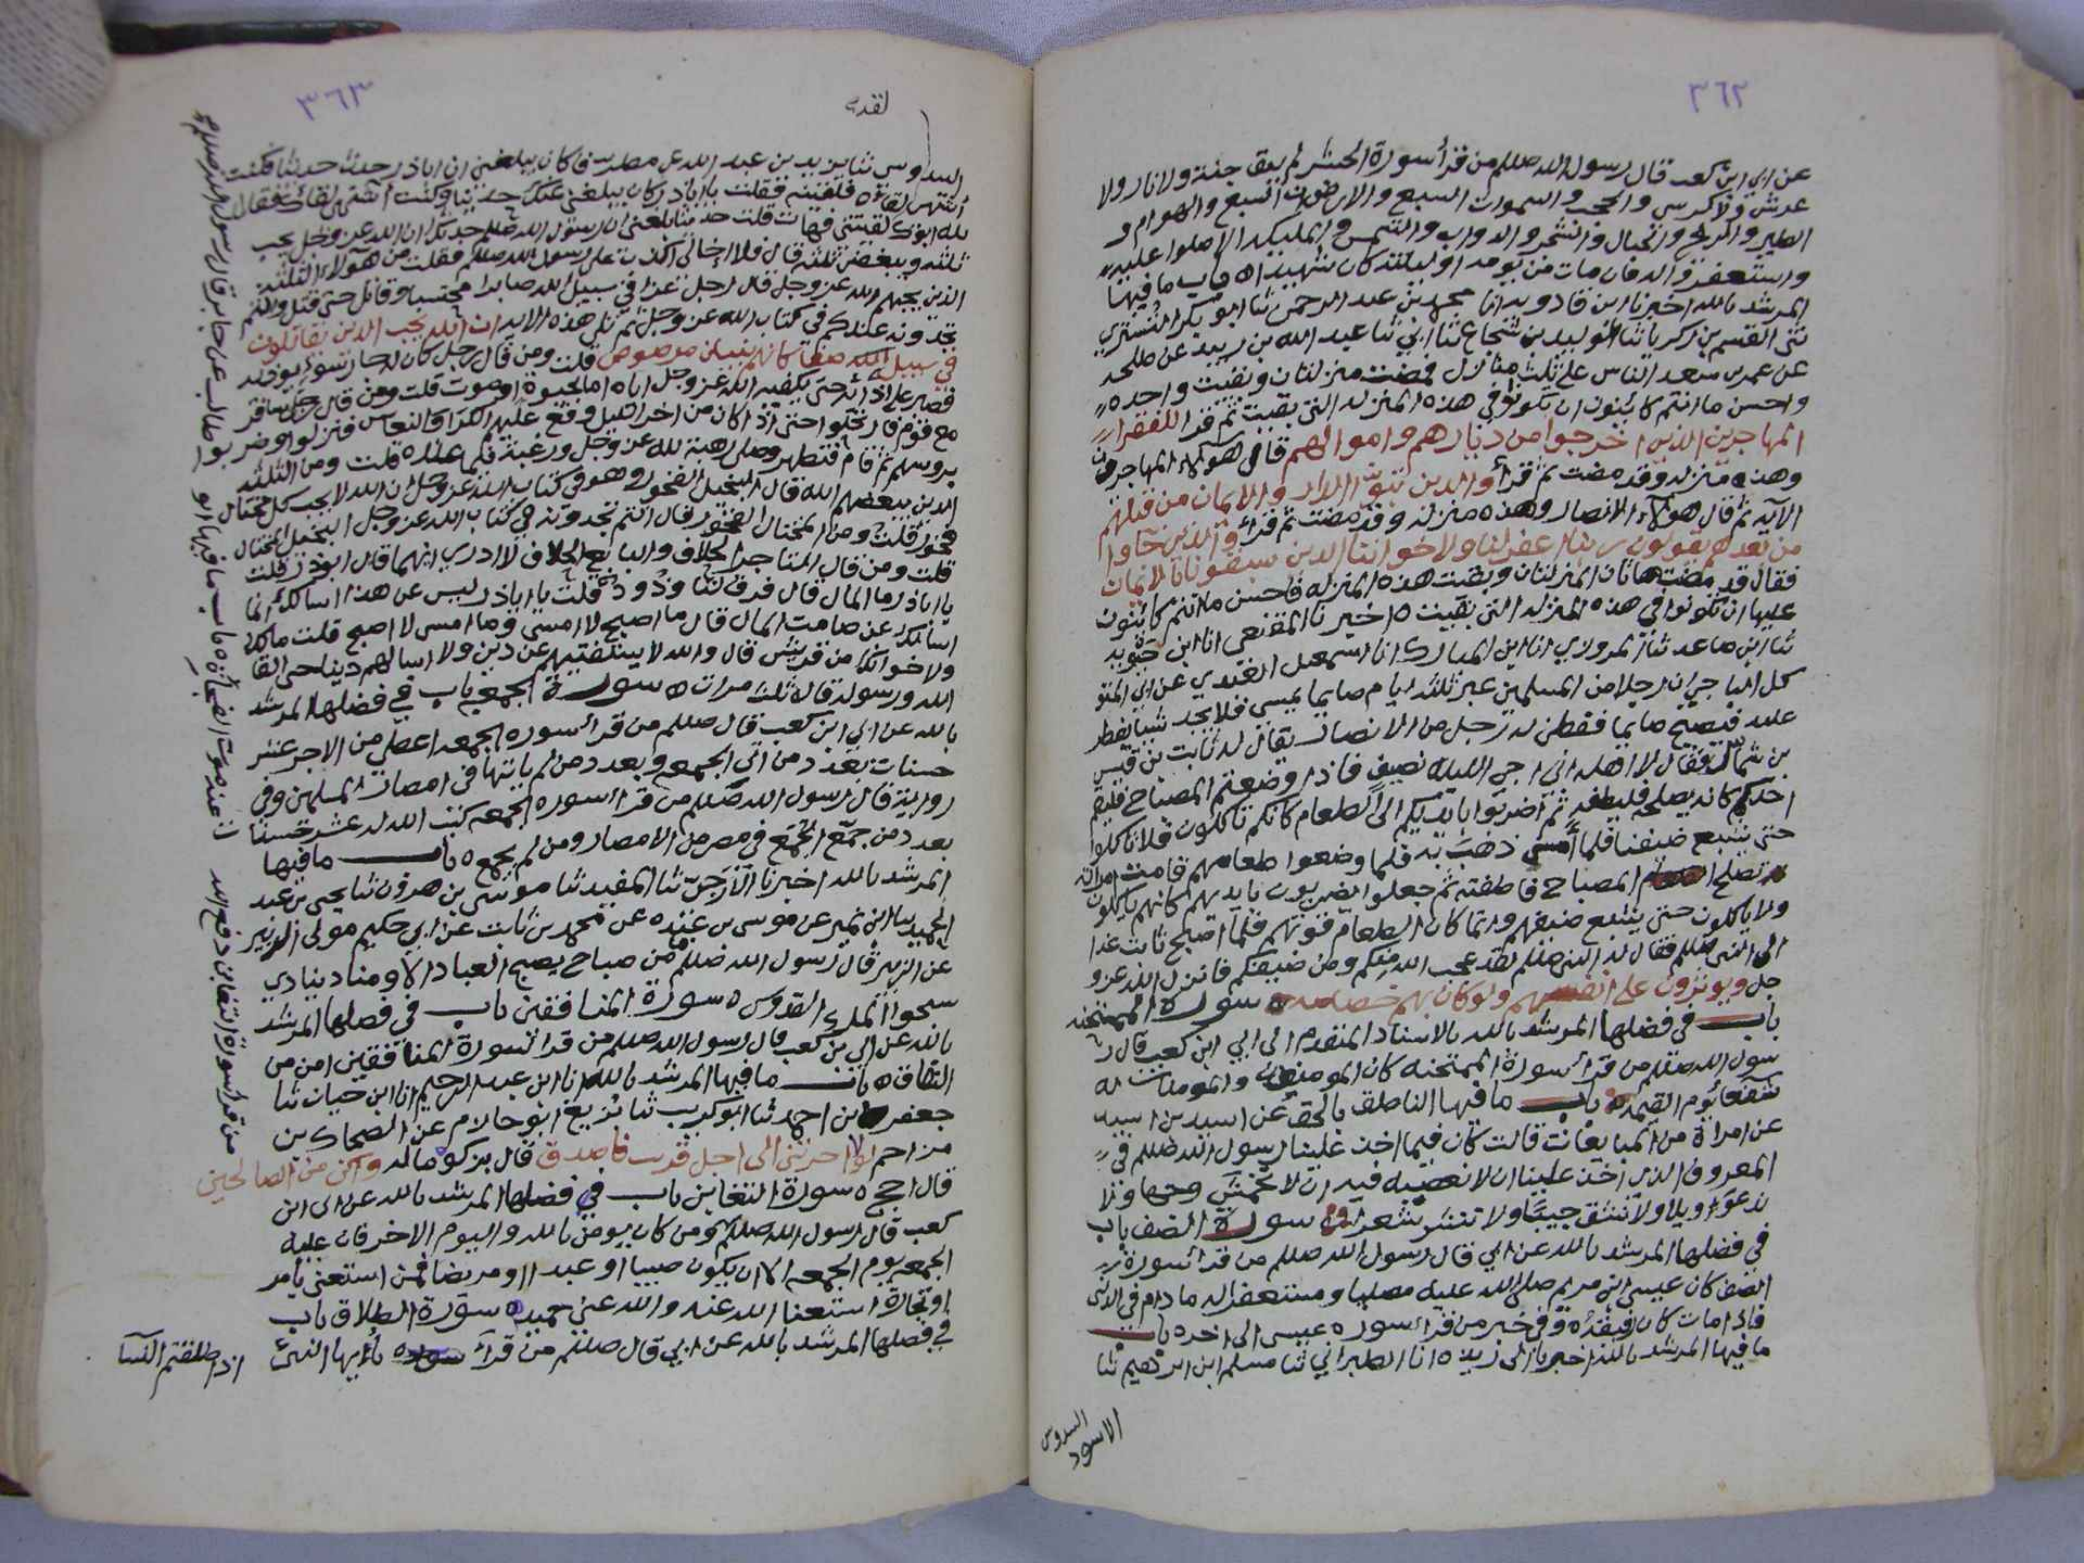 ٣٦٢
عن ابي ابن كعب قال رسول الله صللم من قرأ سورة الحشر لم يبق جنة ولا نار ولا
عرش ولا كرسي والحجب والسموات السبع والارضون السبع والهوام و
الطير والريح والجبال والشجر والدواب والشمس والمليكة الا صلوا عليه
واستغفروا له فان مات من يومه او ليلته كان شهيدا ه باب ما فيها
المرشد بالله اخبرنا ابن قادويه انا محمد بن عبد الرحمن ثنا ابو بكر التستري
ثنى القسم بن زكريا ثنا الوليد بن شجاع ثنا ابي ثنا عبد الله بن زبيد عن طلحه
عن عمر بن سعد الناس على ثلث منازل فمضت منزلتان وبقيت واحده
واحسن ما انتم كائنون ان تكونوا في هذه المنزله التي بقيت ثم قرا للفقرا
المهاجرين الذين اخرجوا من ديارهم واموالهم قال هولاء المهاجرون
وهذه منزله وقد مضت ثم قرأ والذين تبوؤ الدار والايمان من قبلهم
الآيه ثم قال هولاء الانصار وهذه منزله وقد مضت ثم قرأ والذين جآوا
من بعدهم يقولون ربنا اغفر لنا ولاخواننا الذين سبقونا بالايمان
فقال قد مضت هاتان المنزلتان وبقيت هذه المنزله فاحسن ما انتم كائنون
عليها ان تكونوا في هذه المنزله التي بقيت ه اخبرنا المقنعي انا ابن حيويه
ثنا ابن صاعد ثنا المروزي انا ابن المبارك انا اسمعيل العبدي عن ابي المتو
كل الناجي ان رجلا من المسلمين عبر ثلثه ايام صايما يمسى فلا يجد شيئا يفطر
عليه فيصبح صايما ففطن له رجل من الانصار يقال له ثابت بن قيس
بن شماس فقال لاهله اني اجي الليله بضيف فاذا وضعتم المصباح فليقم
احدكم كانه يصلحه فليطفه ثم اضربوا بايديكم الى الطعام كانكم تاكلون فلا تاكلوا
حتى يشبع ضيفنا فلما أمسى ذهب به فلما وضعوا طعامهم قامت امرأته
تصلح المصباح فاطفته ثم جعلوا يضربون بايديهم كانهم ياكلون
ولا ياكلون حتى يشبع ضيفهم وانما كان الطعام قوتهم فلما اصبح ثابت غدا
الى النبي صللم فقال له النبي صللم لقد عجب الله منكم ومن ضيفكم فانزل الله عز و
جل ويوثرون على انفسهم ولو كان بهم خصاصه ه سورة الممتحنه
باب في فضلها المرشد بالله بالاسناد المتقدم الى ابي ابن كعب قال ر
سول الله صللم من قرأ سورة الممتحنه كان المومنون والمومنات له
شفعا يوم القيمه ه باب ما فيها الناطق بالحق عن اسيد بن اسيد
عن امرأة من المبايعات قالت كان فيما اخذ علينا رسول الله صللم في
المعروف الذي اخذ علينا ان لا نعصيه فيه ان لا نخمش وجها ولا
ندعوا ويلا ولا نشق جيبا ولا ننشر شعرا ه سورة الصف باب
في فضلها المرشد بالله عن ابي قال رسول الله صللم من قرأ سورة
الصف كان عيسى ابن مريم صلى الله عليه مصليا ومستغفرا له ما دام في الدنى
فاذا مات كان رفيقه ه وفي خبر من قرأ سورة عيسى الى اخره باب
ما فيها المرشد بالله اخبرنا ابن ريذه انا الطبراني ثنا مسلم ابن ابراهيم ثنا
الاسود
السدوس
٣٦٣
لقد
السدوسي ثنا يزيد بن عبد الله عن مطرف فا كان يبلغني ان اباذر حديث حديثا فكنت
أشتهي لقائه فلقيته فقلت يا اباذر كان يبلغني عنك حديثا وكنت أشتهي لقائك فقال
لله ابوك لقيتني فهات قلت حديثا بلغني ان رسول الله صللم حدثك ان الله عز وجل يحب
ثلثه ويبغض ثلثه قال فلا اخالى اكذب على رسول الله صللم فقلت من هولاء الثلثه
الذين يحبهم الله عز وجل قال رجل غزا في سبيل الله صابرا محتسبا وقاتل حتى قتل وانتم
تجدونه عندكم في كتاب الله عز وجل ثم تلى هذه الايه ان الله يحب الذين يقاتلون
في سبيله صفا كانهم بنيان مرصوص قلت ومن قال رجل كان له جار سوء يوذيه
فصبر على اذائه حتى يكفيه الله عز وجل اياه اما بحيوة او موت قلت ومن قال رجل سافر
مع قوم فارتحلوا حتى اذا كان من اخر الليل وقع عليهم الكرا والنعاس فنزلوا وضربو
بروسهم ثم قام فتطهر وصلى رهبة لله عز وجل ورغبة فيما عنده قلت ومن الثلثه
الذين يبغضهم الله قال البخيل الفخور وهو في كتاب الله عز وجل ان الله لا يحب كل مختال
فخور قلت ومن المختال الفخور قال انتم تجدونه في كتاب الله عز وجل البخيل المختال
قلت ومن قال التاجر الحلاف والبايع الحلاف لا ادري ايهما قال ابوذر قلت
يا اباذر ما المال قال فرق لنا وذود قلت يا اباذر ليس عن هذا اسالك انما
اسالك عن صامت المال قال ما اصبح لا امسى وما امسى لا اصبح قلت مالك
ولاخوانك من قريش قال والله لا يستفتيهم عن دين ولا اسالهم دينا حتى القا
الله ورسوله قاله ثلث مرات ه سورة الجمعه باب في فضلها المرشد
بالله عن ابي ابن كعب قال صللم من قرأ سورة الجمعه اعطي من الاجر عشر
حسنات بعدد من اتى الجمعه وبعدد من لم ياتها في امصار المسلمين وفي
رواية قال رسول الله صللم من قرأ سورة الجمعه كتب الله له عشر حسنا
بعدد من جمع الجمع في مصر من الامصار ومن لم يجمع ه باب ما فيها
المرشد بالله اخبرنا الازجي ثنا المفيد ثنا موسى بن هرون ثنا يحيى بن عبد
الحميد ثنا ابن نمير عن موسى بن عبيده عن محمد بن ثابت عن ابي حكيم مولى الزبير
عن الزبير قال رسول الله صللم من صباح يصبح العباد الا ومناد ينادي
سبحوا الملك القدوس ه سورة المنافقين باب في فضلها المرشد
بالله عن ابي بن كعب قال رسول الله صللم من قرا سورة المنافقين امن من
النفاق ه باب ما فيها المرشد بالله انا ابن عبد الرحيم انا ابن حيان ثنا
جعفر بن احمد ثنا ابو كريب ثنا بزيع ابو حازم عن الضحاك بن
مزاحم لولا اخرتني الى اجل قريب فاصدق قال بزكوه ماله واكن من الصالحين
قال احج ه سورة التغابن باب في فضلها المرشد بالله عن ابي ابن
كعب قال رسول الله صللم ومن كان يومن بالله واليوم الاخر فان عليه
الجمعه يوم الجمعه الا ان يكون صبيا او عبدا او مريضا فمن استغنى بامر
او تجارة استغنا الله عنه والله غني حميد ه سورة الطلاق باب
في فضلها المرشد بالله عن ابي قال صللم من قرأ سورة يا أيها النبي
اذا طلقتم النسآ
من قرأ سورة التغابن دفع الله عنه موت الفجأة ه باب ما فيها ابو طالب عن جابر قال رسول الله صللم